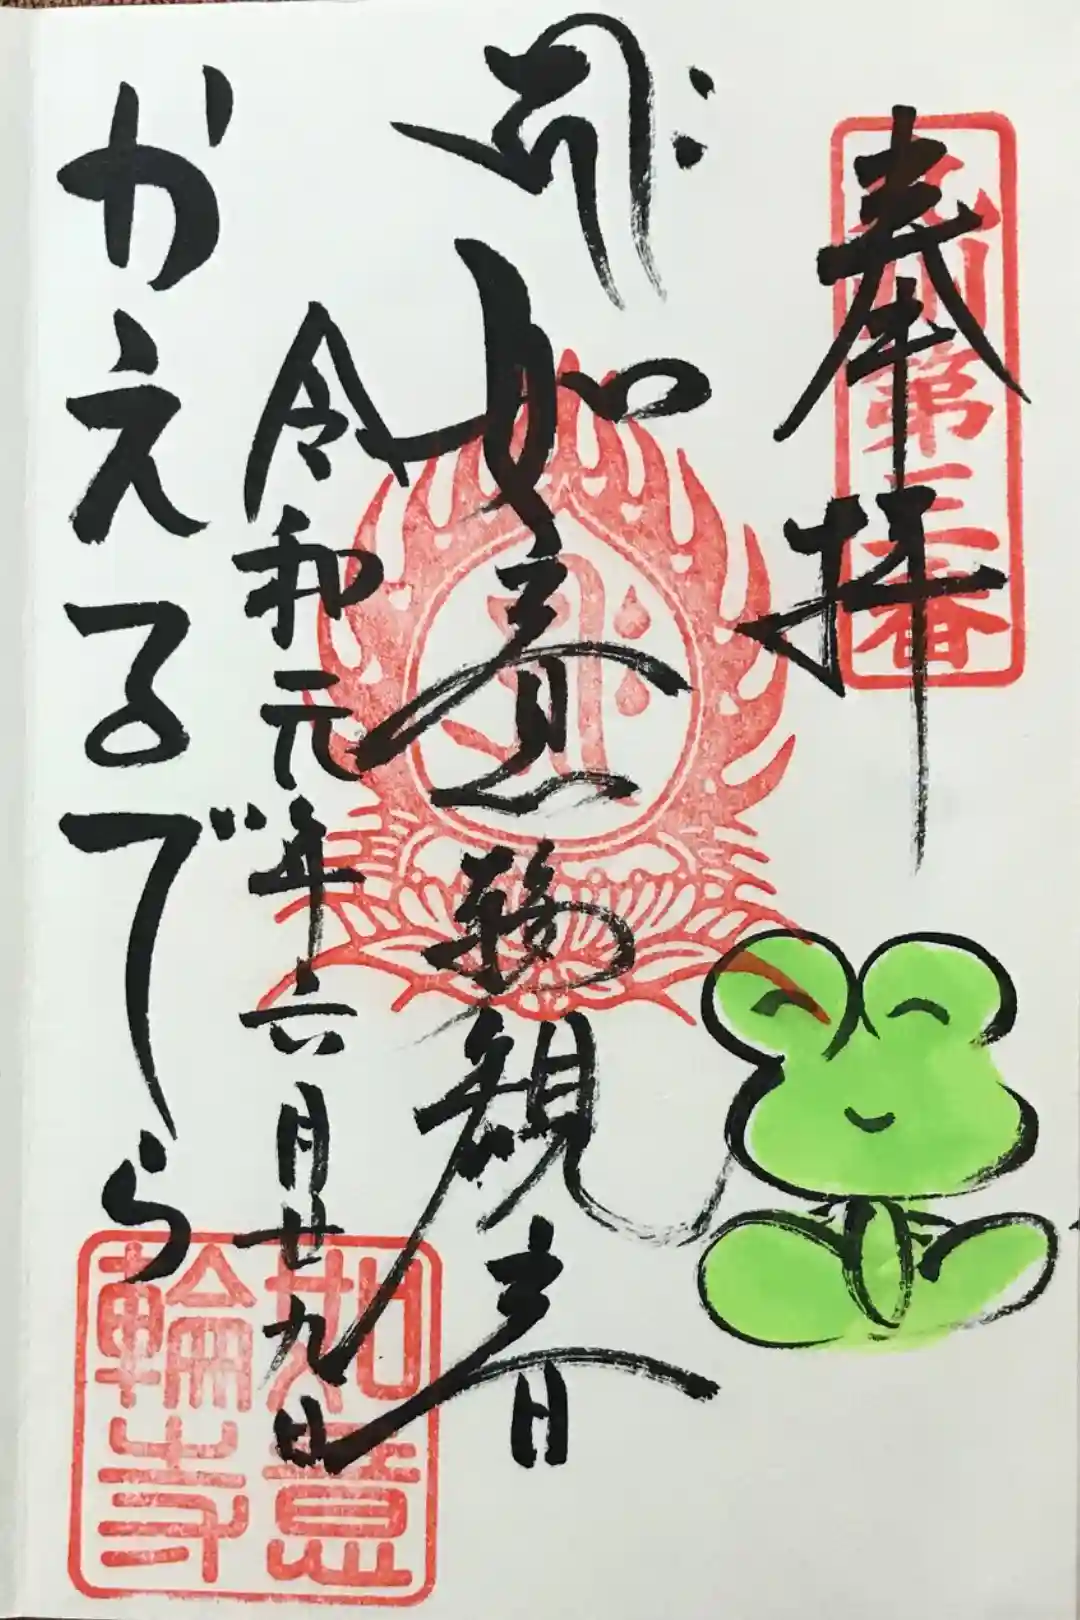 奉拝
九州第三番
如意輪観音
令和元年六月廿九日
かえるでら
如意
輪寺